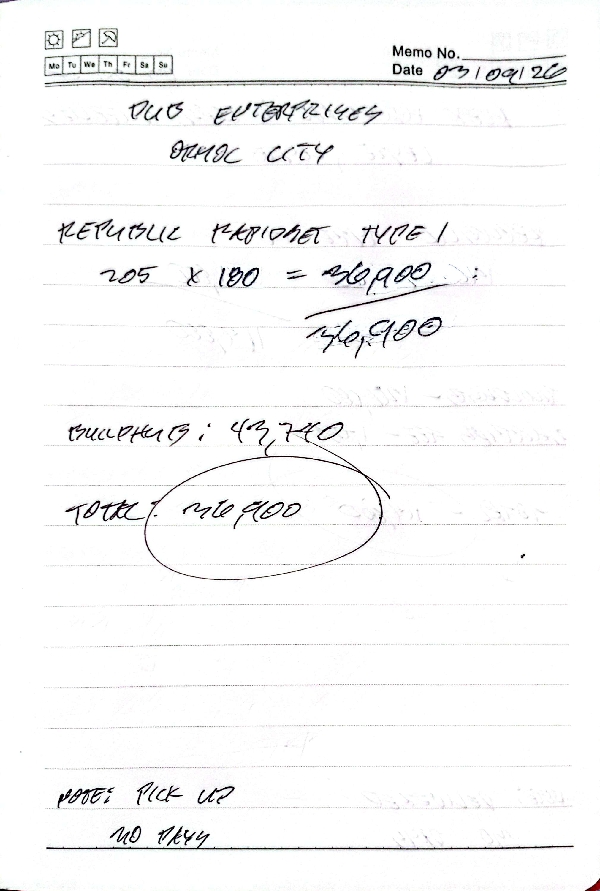 Mo Tu We Th Fr Sa Su
Memo No.
Date 03/09/26
DUB ENTERPRISES
ORMOC CITY
REPUBLIC RAPIDSET TYPE 1
205 X 180 = 36,900
36,900
BUILDHUB: 43,740
TOTAL: 36,900
NOTE: PICK UP
NO